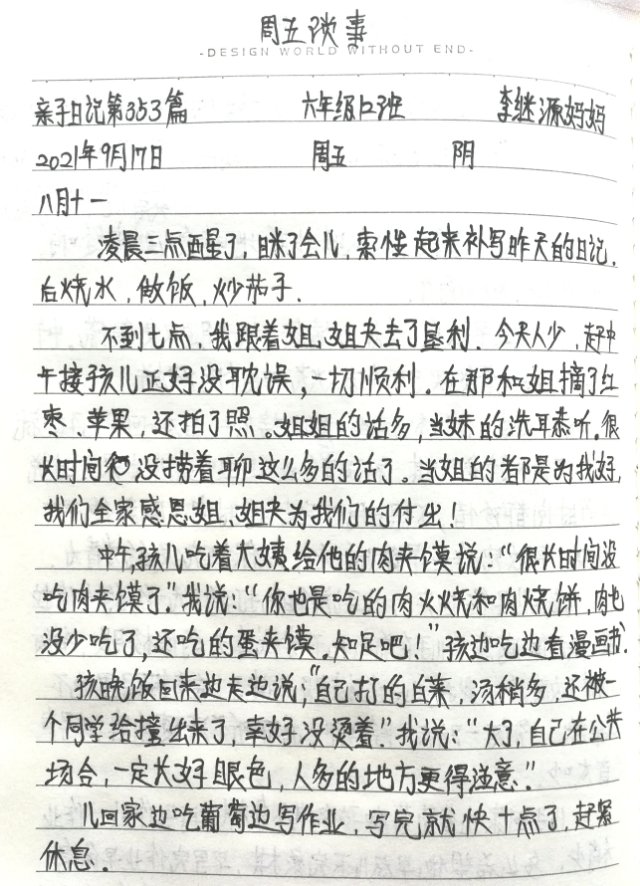 周五琐事
-DESIGN WORLD WITHOUT END-
亲子日记第353篇 六年级12班 李继源妈妈
2021年9月17日 周五 阴
八月十一
凌晨三点西醒了,眯了会儿,索性起来补写昨天的日记.
后烧水,做饭,炒茄子.
不到七点,我跟着姐、姐夫去了垦利.今天人少,赶中
午接孩儿正好没耽误,一切顺利.在那和姐摘了红
枣、苹果,还拍了照。姐姐的话多,当妹的洗耳恭听.很
长时间没捞着聊这么多的话了。当姐的都是为我好,
我们全家感恩姐、姐夫为我们的付出!
中午,孩儿吃着大姨给他的肉夹馍说:“很长时间没
吃肉夹馍了.”我说:“你也是吃的肉火烧和肉烧饼,肉也
没少吃了,还吃的蛋夹馍.知足吧!”孩边吃边看漫画书.
孩晚饭回来边走边说:“自己打的白菜,汤稍多,还被一
个同学给撞出来了,幸好没烫着.”我说:“大了,自己在公共
场合,一定长好眼色,人多的地方更得注意.”
儿回家边吃葡萄边写作业,写完就快十点了,赶紧
休息.